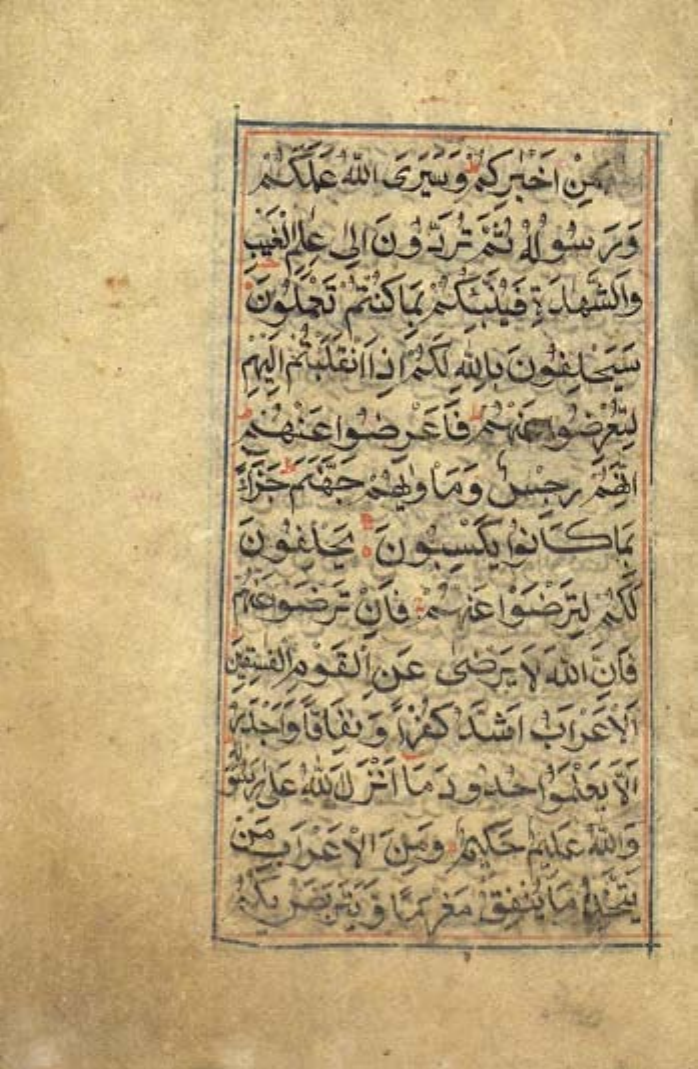 مِنْ اَخْبَارِكُمْ ط وَسَيَرَى اللّٰهُ عَمَلَكُمْ
وَرَسُوْلُهُ ثُمَّ تُرَدُّوْنَ اِلٰى عٰلِمِ الْغَيْبِ
وَالشَّهَادَةِ فَيُنَبِّئُكُمْ بِمَا كُنْتُمْ تَعْمَلُوْنَ
سَيَحْلِفُوْنَ بِاللّٰهِ لَكُمْ اِذَا انْقَلَبْتُمْ اِلَيْهِمْ
لِتُعْرِضُوْا عَنْهُمْ ط فَاَعْرِضُوْا عَنْهُمْ ط
اِنَّهُمْ رِجْسٌ وَمَاْوٰىهُمْ جَهَنَّمُ ط جَزَآءً
بِمَا كَانُوْا يَكْسِبُوْنَ يَحْلِفُوْنَ
لَكُمْ لِتَرْضَوْا عَنْهُمْ فَاِنْ تَرْضَوْا عَنْهُمْ
فَاِنَّ اللّٰهَ لَا يَرْضٰى عَنِ الْقَوْمِ الْفٰسِقِيْنَ
اَلْاَعْرَابُ اَشَدُّ كُفْرًا وَنِفَاقًا وَاَجْدَرُ
اَلَّا يَعْلَمُوْا حُدُوْدَ مَا اَنْزَلَ اللّٰهُ عَلٰى رَسُوْلِهِ
وَاللّٰهُ عَلِيْمٌ حَكِيْمٌ وَمِنَ الْاَعْرَابِ مَنْ
يَتَّخِذُ مَا يُنْفِقُ مَغْرَمًا وَيَتَرَبَّصُ بِكُمُ